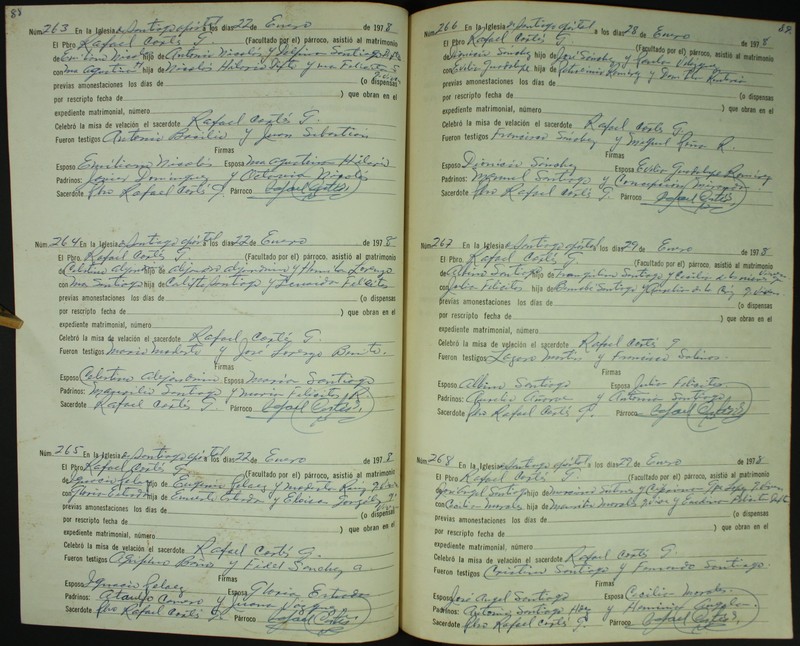 83
Núm. 263 En la Iglesia de Santiago apóstol a los días 22 de Enero de 1978
El Pbro. Rafael Cortés G. (Facultado por el) párroco, asistió al matrimonio
de Emiliano Nicolás hijo de Antonio Nicolás y
con Ma Agustina hija de Nicolás Hilario y
previas amonestaciones los días de (o dispensas
por rescripto fecha de ) que obran en el
expediente matrimonial, número
Celebró la misa de velación el sacerdote Rafael Cortés G.
Fueron testigos Antonio Basilio y Juan Sebastián
Firmas
Esposo Emiliano Nicolás Esposa Ma Agustina Hilario
Padrinos: Javier Domínguez y Octavia Nicolás
Sacerdote Pbro Rafael Cortés G. Párroco Rafael Cortés
Núm. 264 En la Iglesia de Santiago apóstol a los días 22 de Enero de 1978
El Pbro. Rafael Cortés G. (Facultado por el) párroco, asistió al matrimonio
de Celestino hijo de Alejandro y Lorenzo
con Ma Santiago hija de Calixto Santiago y Felicitas
previas amonestaciones los días de (o dispensas
por rescripto fecha de ) que obran en el
expediente matrimonial, número
Celebró la misa de velación el sacerdote Rafael Cortés G.
Fueron testigos Mario Modesto y José Lorenzo Benito
Firmas
Esposo Celestino Alejandrino Esposa María Santiago
Padrinos: Margarito Santiago y María Felicitas R.
Sacerdote Rafael Cortés G. Párroco Rafael Cortés
Núm. 265 En la Iglesia de Santiago apóstol a los días 22 de Enero de 1978
El Pbro. Rafael Cortés G. (Facultado por el) párroco, asistió al matrimonio
de Ignacio Pelaez hijo de Eugenio Pelaez y Modesta
con Gloria Estrada hija de Ernesto Estrada y Eloisa González
previas amonestaciones los días de (o dispensas
por rescripto fecha de ) que obran en el
expediente matrimonial, número
Celebró la misa de velación el sacerdote Rafael Cortés G.
Fueron testigos Agripino Baños y Fidel Sánchez a
Firmas
Esposo Ignacio Pelaez Esposa Gloria Estrada
Padrinos: Ataulfo y Juana
Sacerdote Pbro Rafael Cortés G. Párroco Rafael Cortés
Núm. 266 En la Iglesia de Santiago apóstol a los días 28 de Enero de 1978
El Pbro. Rafael Cortés G. (Facultado por el) párroco, asistió al matrimonio
de Dionisio Sánchez hijo de José Sánchez y
con Guadalupe hija de Ramírez y
previas amonestaciones los días de (o dispensas
por rescripto fecha de ) que obran en el
expediente matrimonial, número
Celebró la misa de velación el sacerdote Rafael Cortés G.
Fueron testigos Francisco Sánchez y R.
Firmas
Esposo Dionisio Sánchez Esposa Guadalupe Ramírez
Padrinos: Manuel Santiago y Concepción
Sacerdote Pbro Rafael Cortés G. Párroco Rafael Cortés
Núm. 267 En la Iglesia de Santiago apóstol a los días 29 de Enero de 1978
El Pbro. Rafael Cortés G. (Facultado por el) párroco, asistió al matrimonio
de Albino Santiago hijo de Tranquilino Santiago y
con Julia Felicitas hija de Santiago y de la Cruz
previas amonestaciones los días de (o dispensas
por rescripto fecha de ) que obran en el
expediente matrimonial, número
Celebró la misa de velación el sacerdote Rafael Cortés G
Fueron testigos Lázaro Martín y Francisco Salinas
Firmas
Esposo Albino Santiago Esposa Julia Felicitas
Padrinos: Aurelio y Antonia Santiago
Sacerdote Pbro Rafael Cortés G. Párroco Rafael Cortés
Núm. 268 En la Iglesia de Santiago apóstol a los días 29 de Enero de 1978
El Pbro. Rafael Cortés G. (Facultado por el) párroco, asistió al matrimonio
de Angel Santiago hijo de y
con Cecilia Morales hija de Morales y
previas amonestaciones los días de (o dispensas
por rescripto fecha de ) que obran en el
expediente matrimonial, número
Celebró la misa de velación el sacerdote Rafael Cortés G.
Fueron testigos Cristino Santiago y Fernando Santiago
Firmas
Esposo José Angel Santiago Esposa Cecilia Morales
Padrinos: Antonio Santiago y
Sacerdote Pbro Rafael Cortés G. Párroco Rafael Cortés